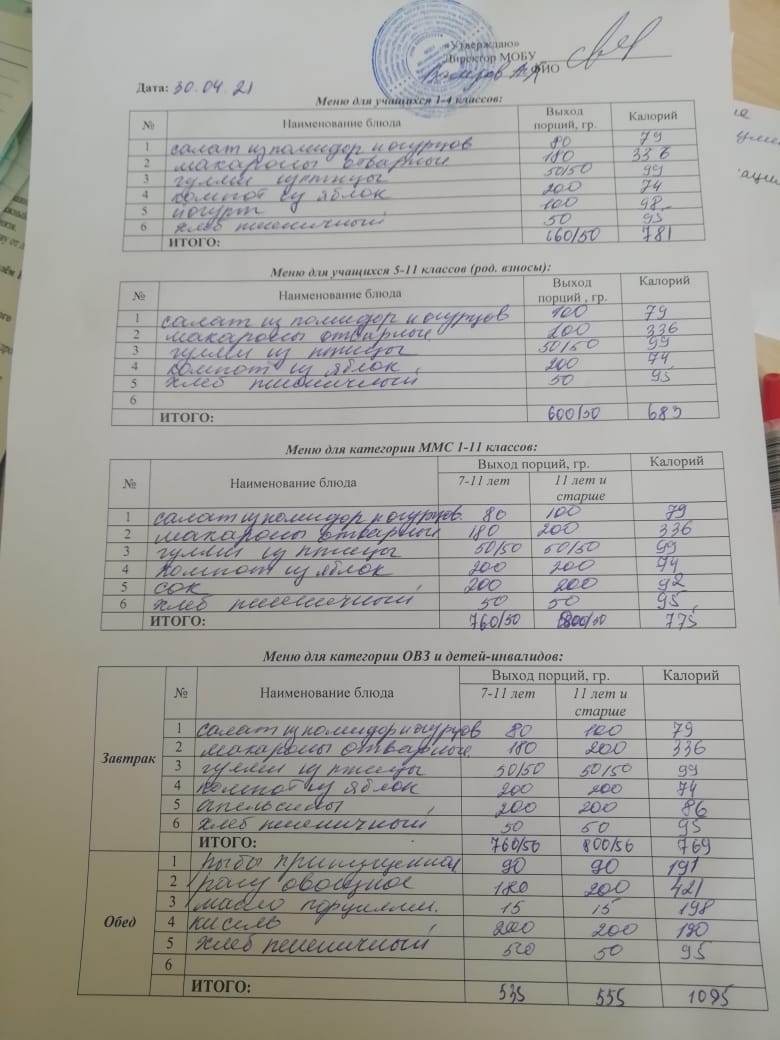 «Утверждаю»
Директор МОБУ
ФИО
Дата: 30.04.21
Меню для учащихся 1-4 классов:
№ Наименование блюда Выход порций, гр. Калорий
1 салат из помидор и огурцов 80 79
2 макароны отварные 180 336
3 гуляш из птицы 50/50 99
4 компот из яблок 200 74
5 йогурт 100 98
6 хлеб пшеничный 50 95
ИТОГО: 660/50 781
Меню для учащихся 5-11 классов (род. взносы):
№ Наименование блюда Выход порций , гр. Калорий
1 салат из помидор и огурцов 100 79
2 макароны отварные 200 336
3 гуляш из птицы 50/50 99
4 компот из яблок 200 74
5 хлеб пшеничный 50 95
6
ИТОГО: 600/50 683
Меню для категории ММС 1-11 классов:
№ Наименование блюда Выход порций, гр. Калорий
7-11 лет 11 лет и старше
1 салат из помидор и огурцов 80 100 79
2 макароны отварные 180 200 336
3 гуляш из птицы 50/50 50/50 99
4 компот из яблок 200 200 74
5 сок 200 200 92
6 хлеб пшеничный 50 50 95
ИТОГО: 760/50 800/50 775
Меню для категории ОВЗ и детей-инвалидов:
№ Наименование блюда Выход порций, гр. Калорий
7-11 лет 11 лет и старше
Завтрак
1 салат из помидор и огурцов 80 100 79
2 макароны отварные 180 200 336
3 гуляш из птицы 50/50 50/50 99
4 компот из яблок 200 200 74
5 апельсины 200 200 86
6 хлеб пшеничный 50 50 95
ИТОГО: 760/50 800/50 769
Обед
1 рыбы припущенная 90 90 191
2 рагу овощное 180 200 421
3 масло порционн. 15 15 198
4 кисель 200 200 190
5 хлеб пшеничный 50 50 95
6
ИТОГО: 535 555 1095